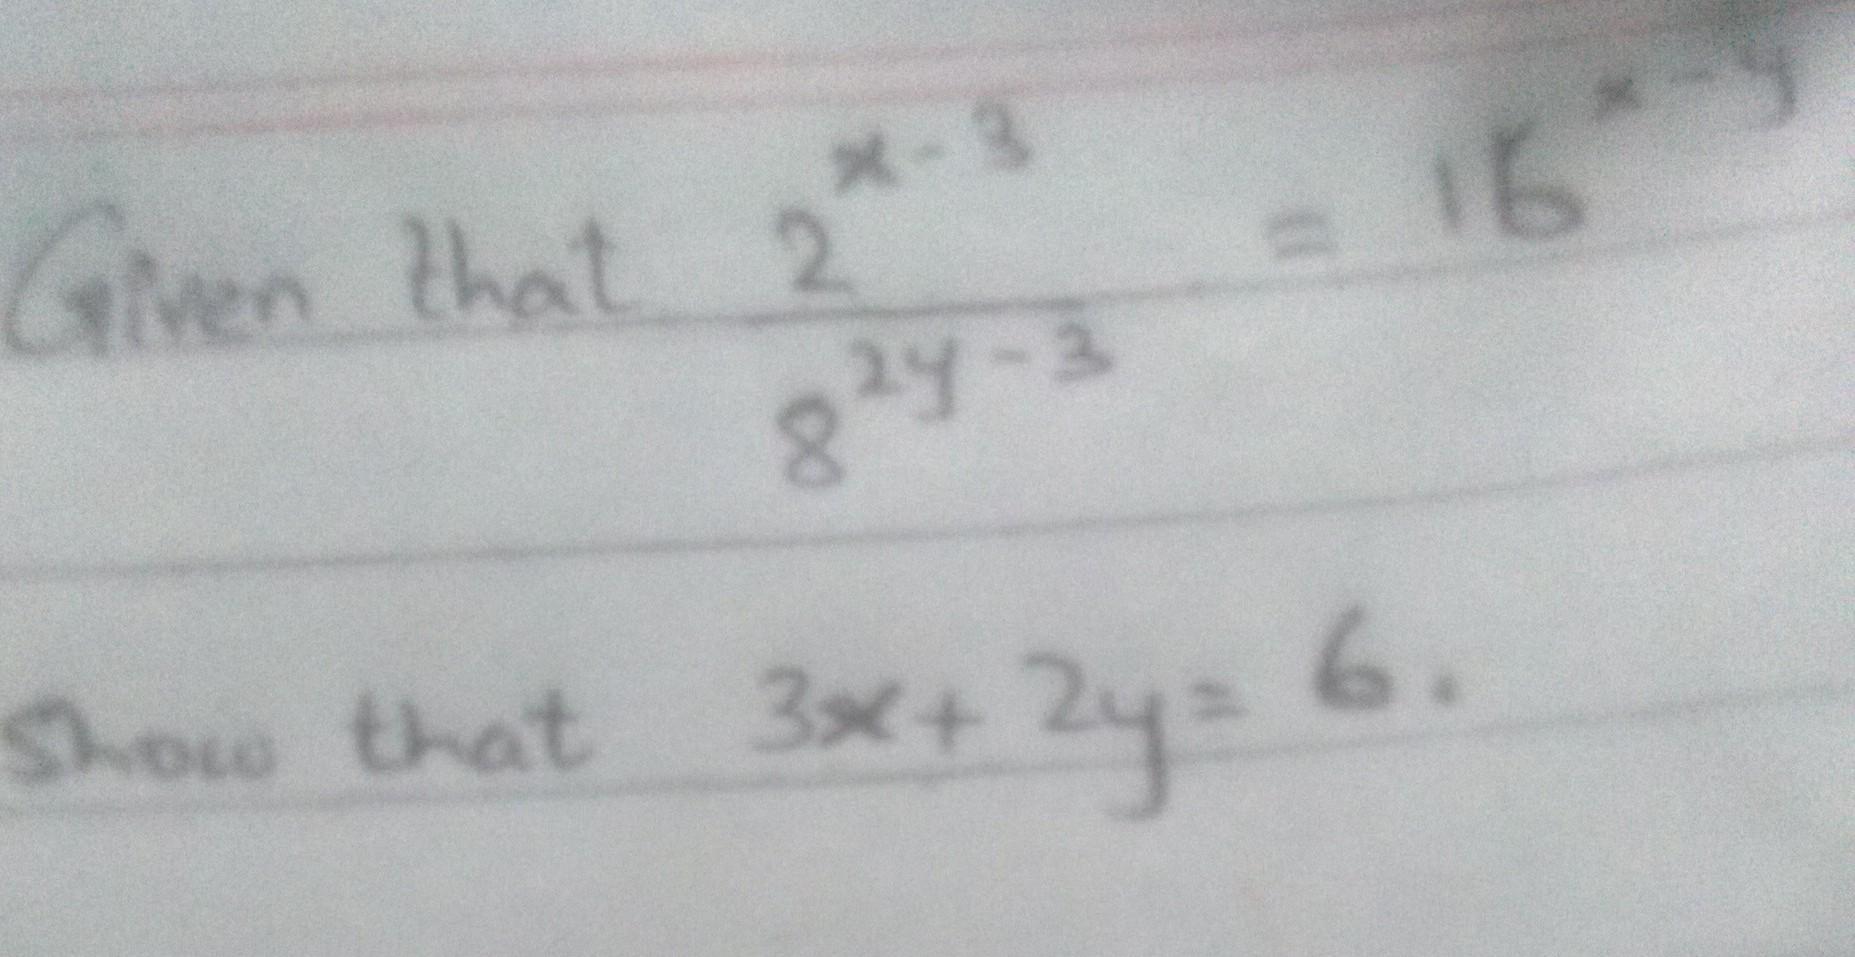 Given that 2^{x-3} / 8^{2y-3} = 16^{x-y}
Show that 3x + 2y = 6.